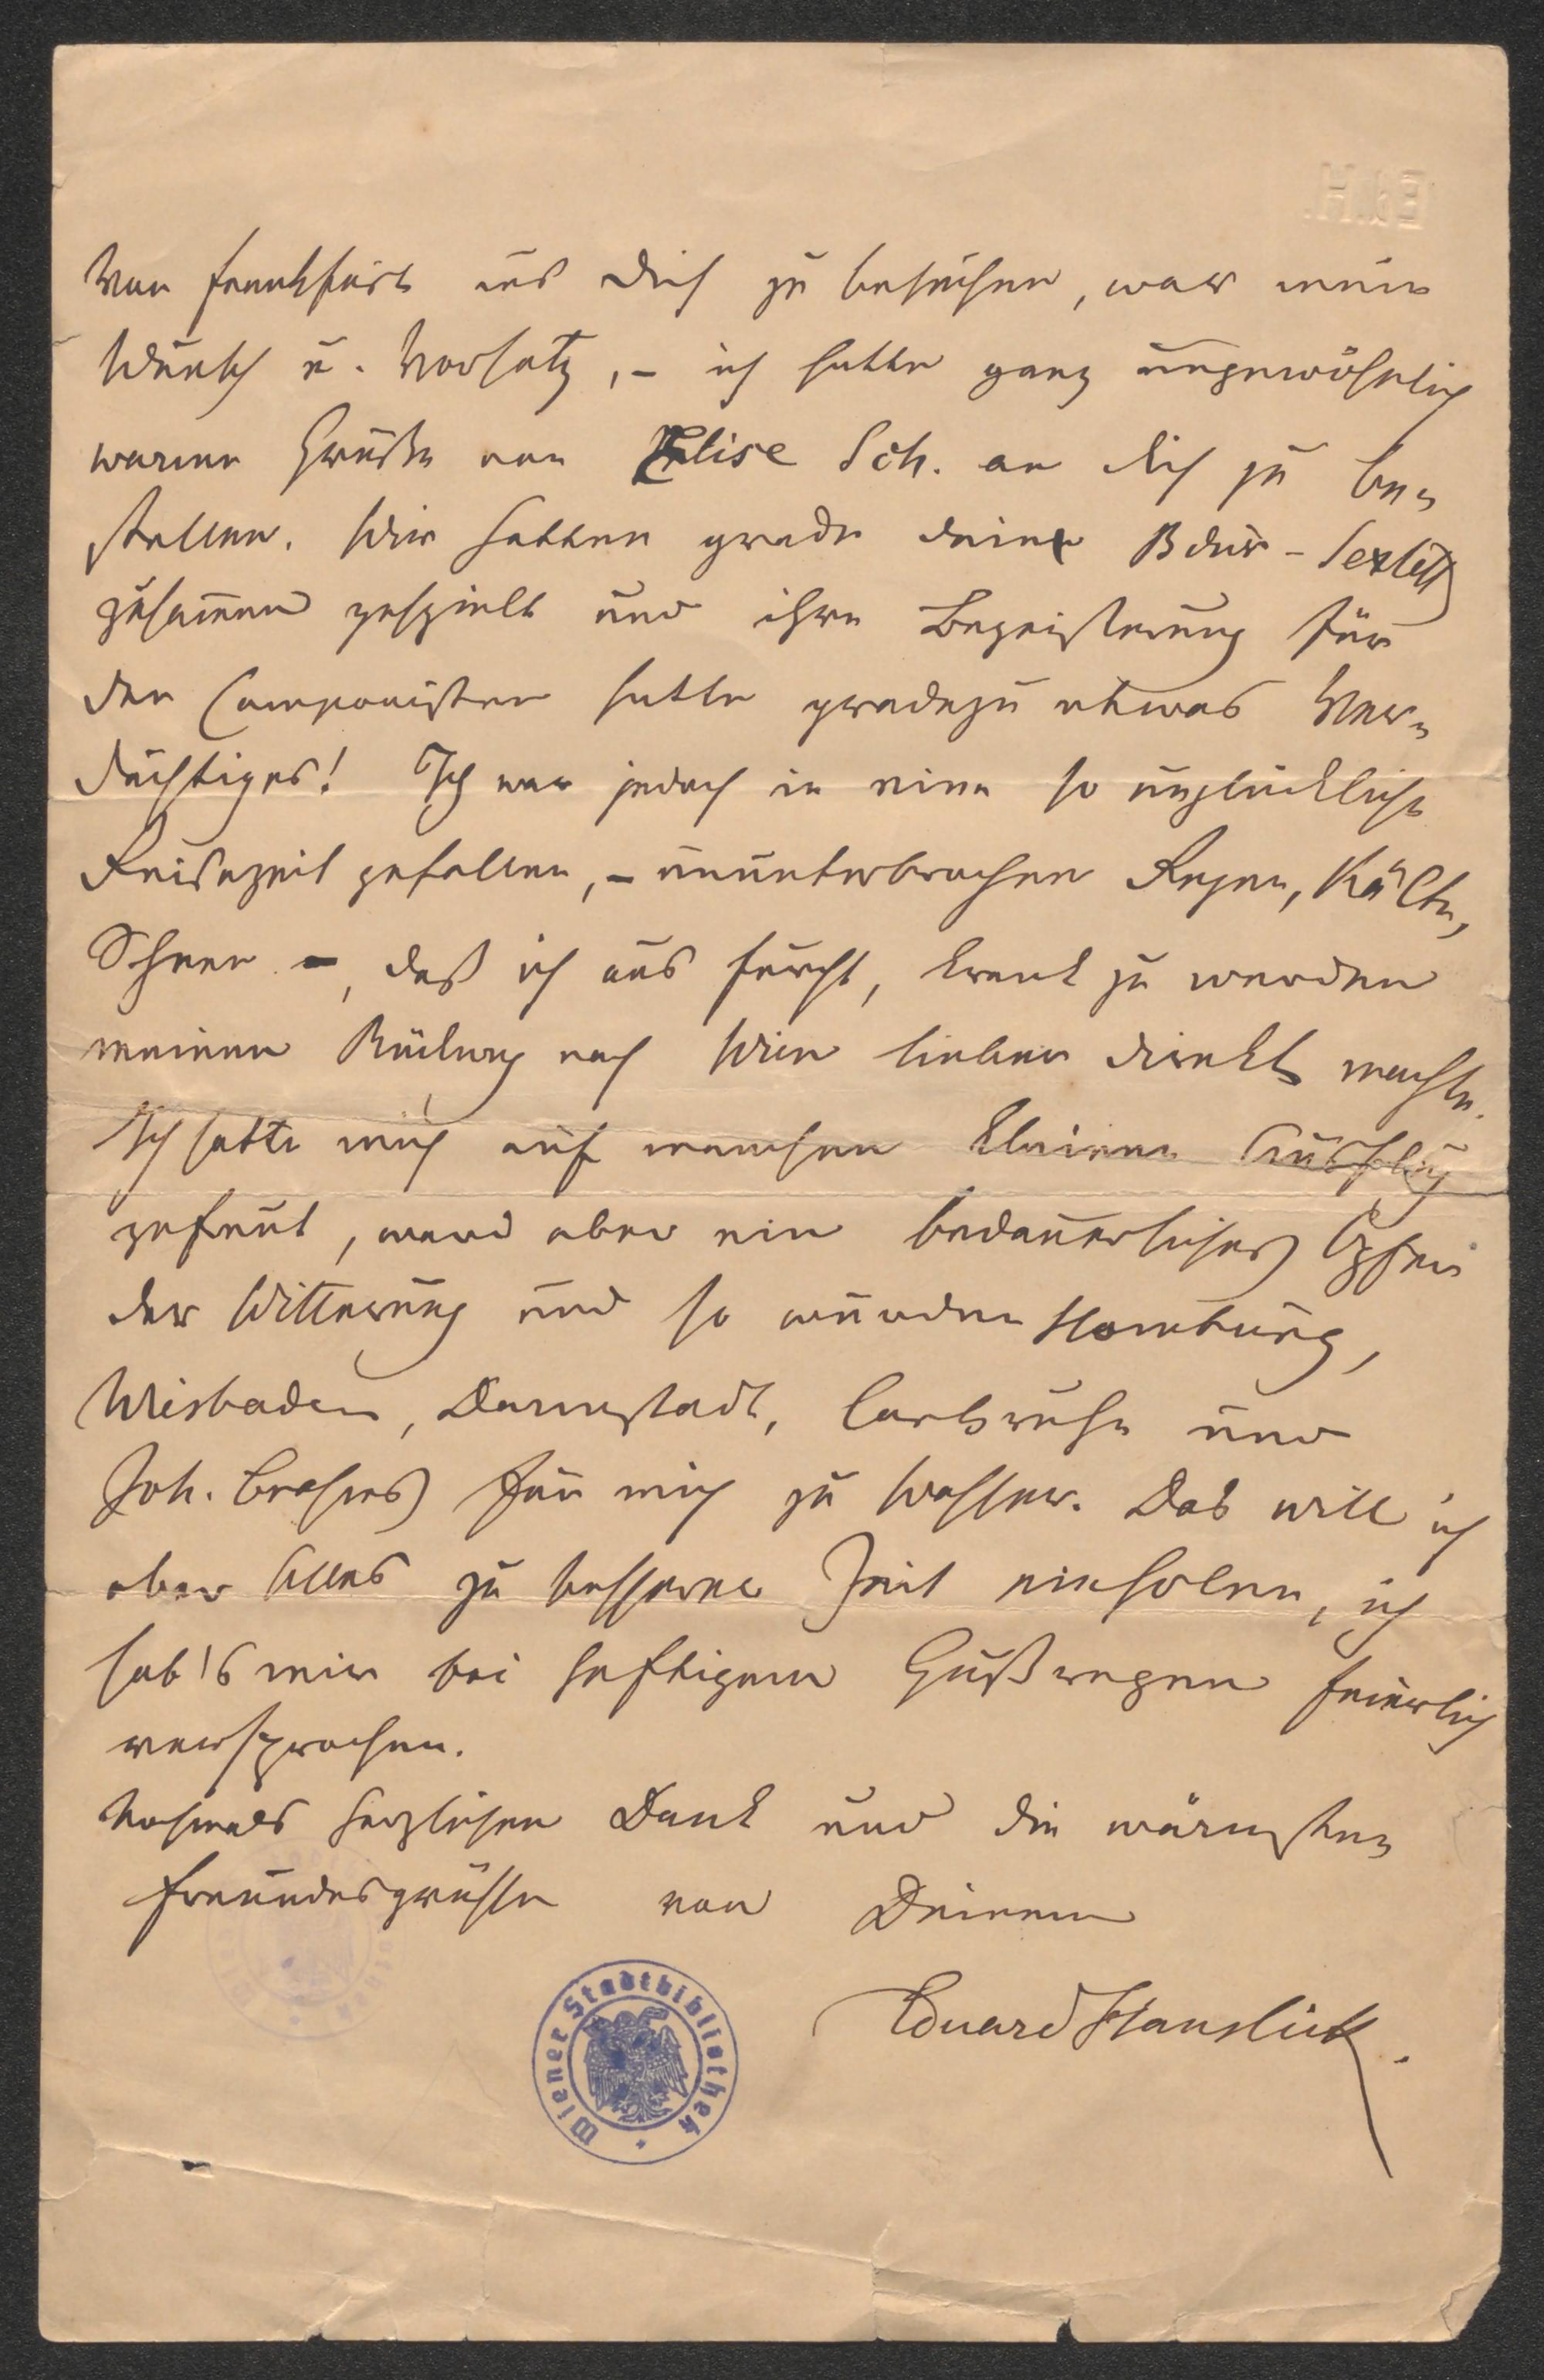 Ed. H.
Von Frankfurt aus Dich zu besuchen, war mein
Wunsch u. Vorsatz, – ich hatte ganz ungewöhnlich
warme Grüße von Elise Sch. an Dich zu be=
stellen. Wir hatten grade Dein Bdur-Sextett
zusam̄en gespielt und ihre Begeisterung für
den Componisten hatte gradezu etwas Ver=
dächtiges! Ich war jedoch in eine so unglückliche
Reisezeit gefallen, – ununterbrochen Regen, Kälte,
Schnee –, daß ich aus Furcht, krank zu werden
meinen Rückweg nach Wien lieber direkt machte.
Ich hatte mich auf manchen kleinen Ausflug
gefreut, ward aber ein bedauerliches Opfer
der Witterung und so wurden Homburg,
Wiesbaden, Darmstadt, Carlsruhe und
Joh. Brahms für mich zu Wasser. Das will ich
aber Alles zu besserer Zeit einholen, ich
hab's mir bei heftigem Gußregen feierlich
versprochen.
Nochmals herzlichen Dank und die wärmsten
Freundesgrüße von Deinem
Eduard Hanslick.
Wiener Stadtbibliothek